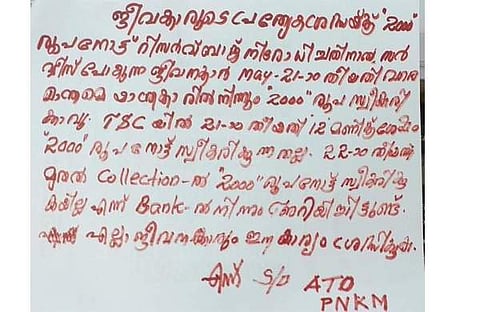 ജീവനക്കാരുടെ പ്രത്യേക ശ്രദ്ധയ്ക്ക് "2000"
രൂപ നോട്ട് റിസർവ് ബാങ്ക് നിരോധിച്ചതിനാൽ സർ
വീസ് പോകുന്ന ജീവനക്കാർ may-21-ാം തീയതി വരെ
മാത്രമെ യാത്രക്കാരിൽ നിന്നും "2000" രൂപ സ്വീകരി
ക്കാവൂ. TSC യിൽ 21-ാം തീയതി 12 മണിക്ക് ശേഷം
"2000" രൂപ നോട്ട് സ്വീകരിക്കുന്നതല്ല. 22-ാം തീയതി
മുതൽ Collection-ൽ "2000" രൂപ നോട്ട് സ്വീകരിക്കു
കയില്ല എന്ന് Bank-ൽ നിന്നും അറിയിച്ചിട്ടുണ്ട്.
എല്ലാ ജീവനക്കാരും ഇക്കാര്യം ശ്രദ്ധിക്കുക.
എന്ന് S/D ATO
PNKM